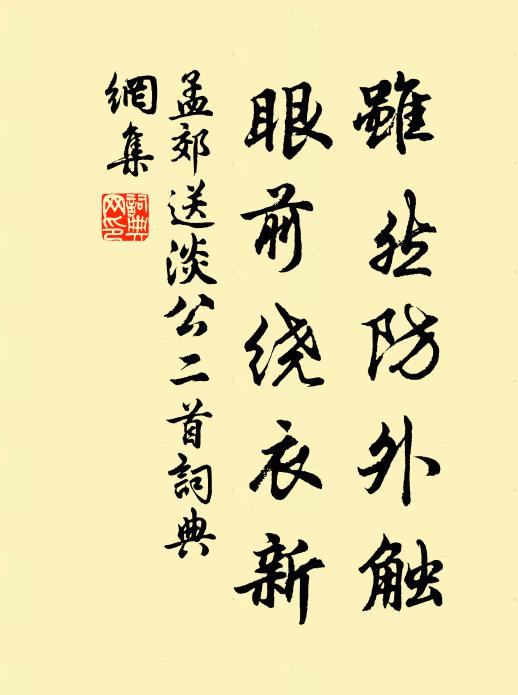 雖然防外触
眼前绕衣新
孟郊送淡公二首詞典
網集
詞典网印